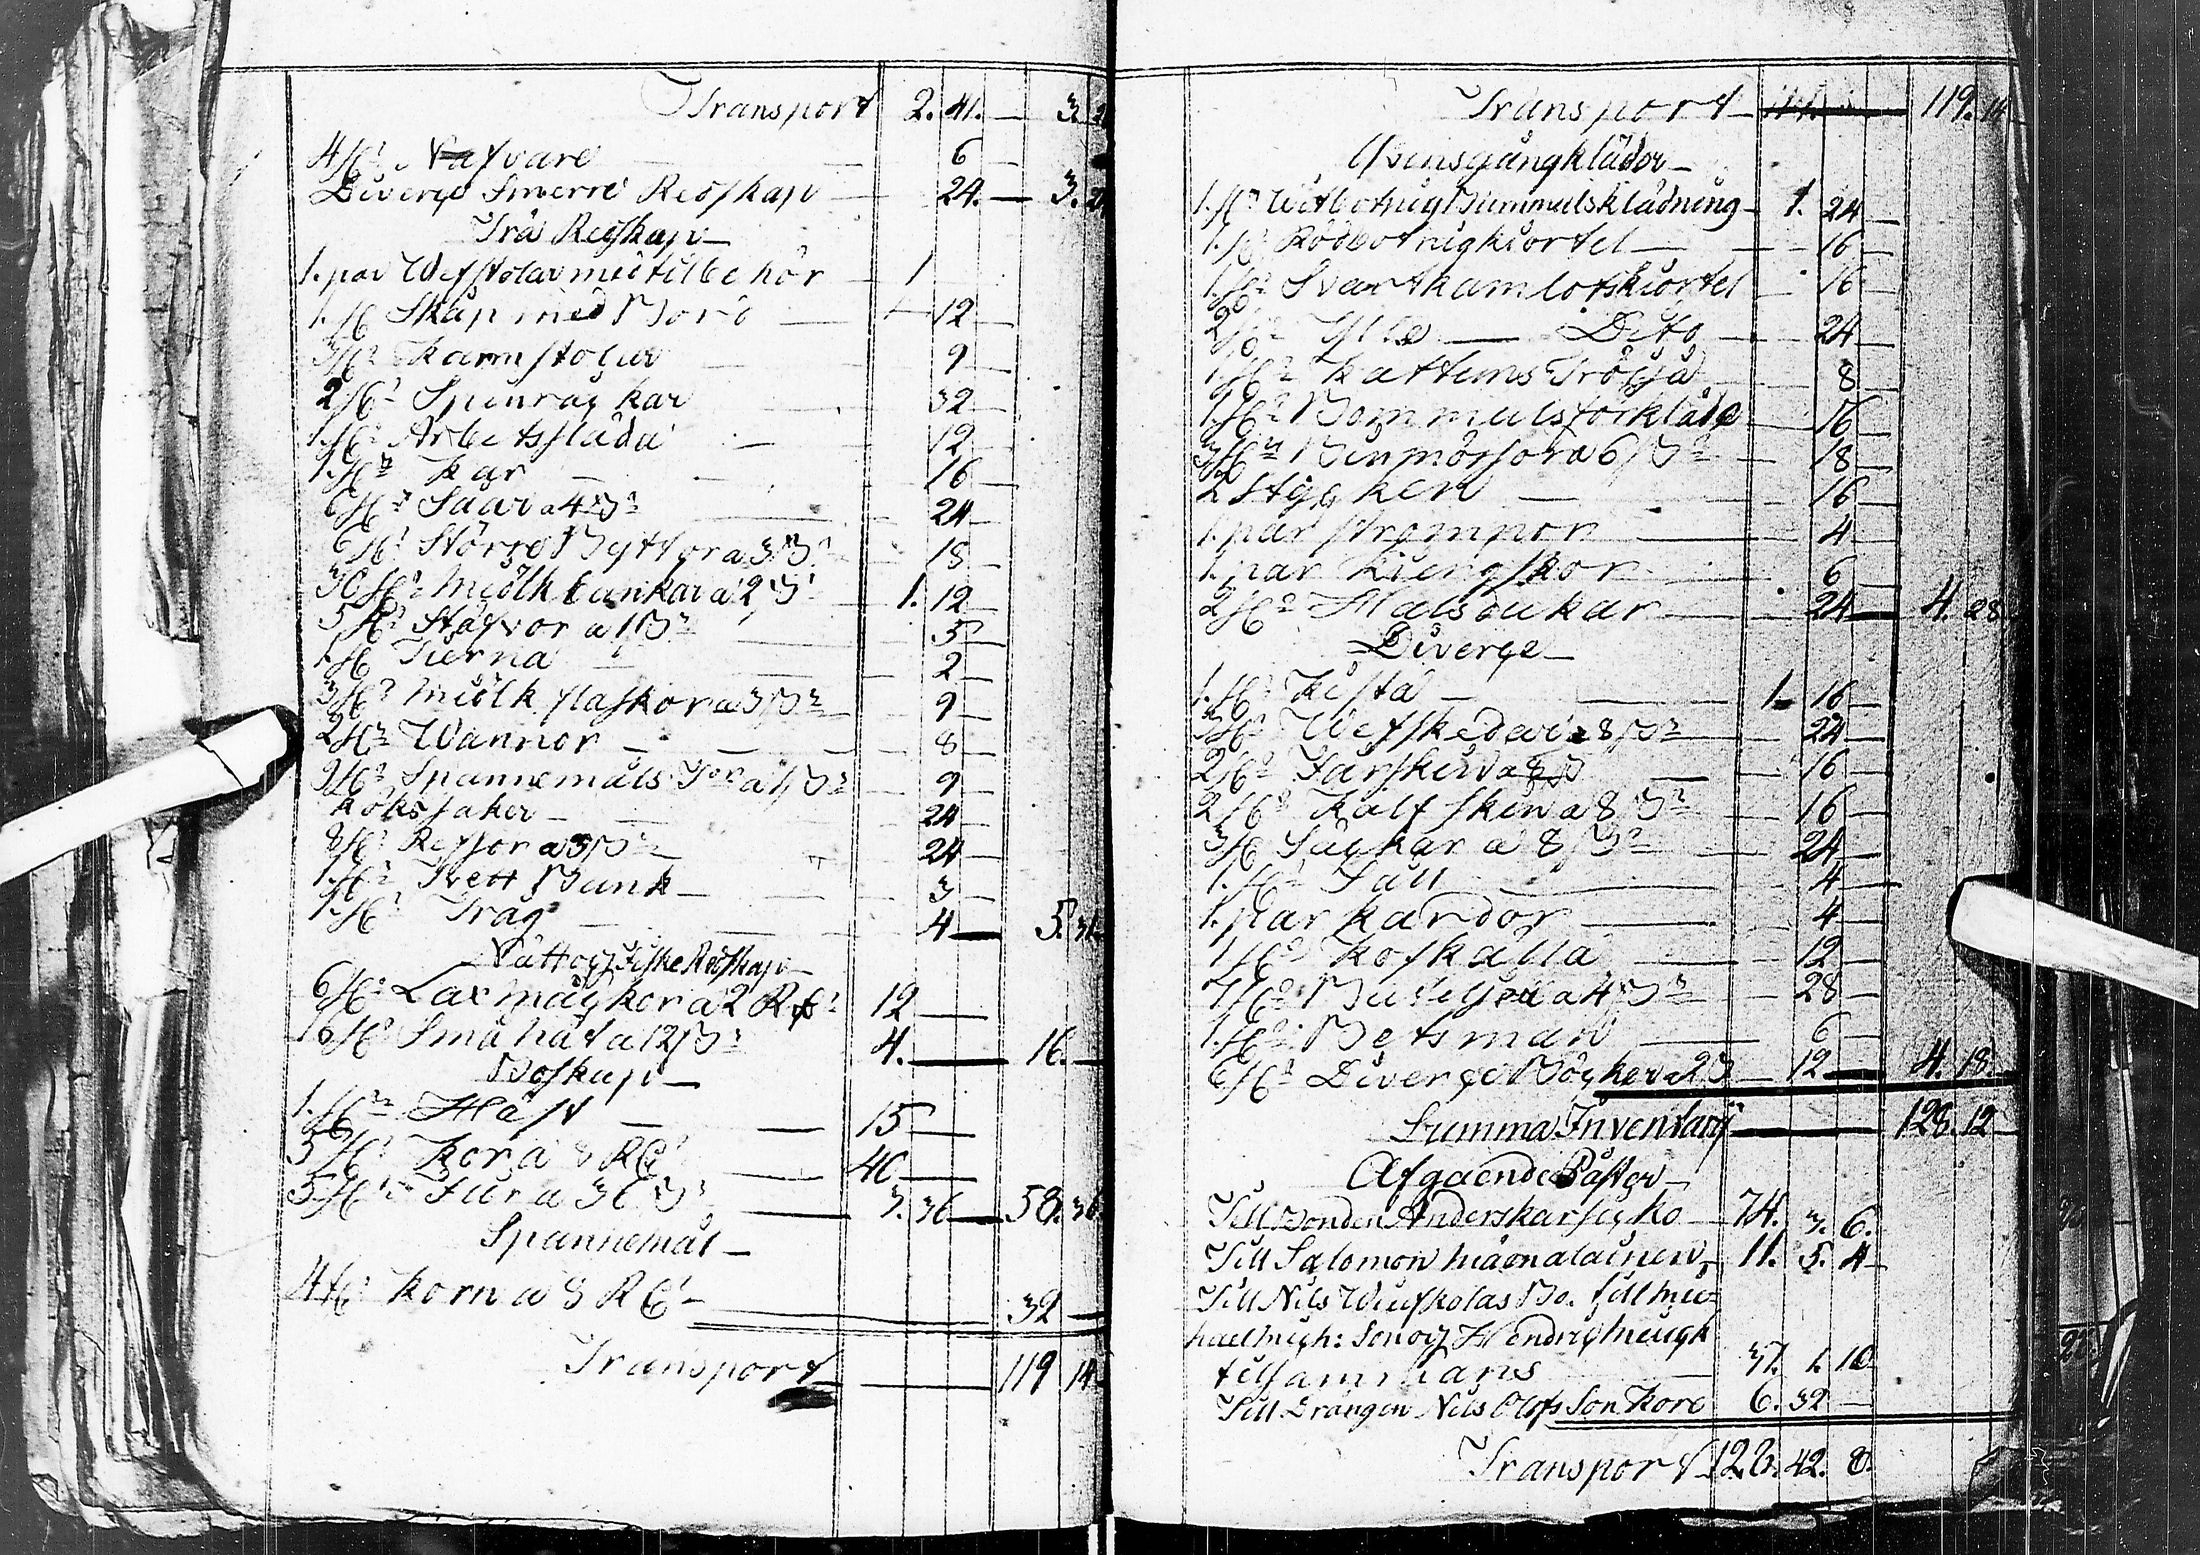 Transport 2. 41. — 3.
4 St: Nafvare — 6 —
Diverse Smerre Redskap — 24. — 3. 21
Trä Redskap —
1. par Wefstolar med tilbehör — 1
1. St Skåp med Bord — 12 —
3 St: Karmstolar 9 —
2 St: Spinråckar 32 —
1. St: Arbetsslada — 12 —
1. St: Kar — 16 —
6 St: Såar a 4 ß: — 24 —
6 St: Större Byttor a 3 ß: 18 —
30 St: Miölk bunkar a 2 ß: 1. 12 —
5 St: Stäfvor a 1 ß: — 5 —
1. St Tierna — 2 —
3 St: Miölk flaskor a 3 ß: — 9 —
2 St: Wannor — 8 —
9 St: Spannemåls a 1 ß: — 9 —
Kökssaker — 24 —
8 St: Refsor a 3 ß: — 24 —
1. St: Bänk — 3 —
1. St: Tråg — 4 — 5. 31.
Nätt og Fiske Redskap —
6 St: Lax a 2 Rd: 12 —
16 St: Små nät a 12 ß: 4. — 16. —
Boskap —
1. St: Häst — 15 —
5 St: Kor a 8 Rd: — 40 —
5 St: Fåra 36 ß: 3. 36 — 58. 36.
Spannemål —
4 t: Korn a 8 Rd: — 32 —
Transport — 119 14
Transport — 119. 14
Gångkläder —
1. St: Klädning — 1. 24 —
1. St: kiortel — 16 —
1. St: Svart kamlotskiortel — 16
2 St: Ylle — Dito — 24 —
1. St: Kattuns Tröija — 8 —
1. St: Bommulsförkläde 16 —
3 St: a 6 ß: — 18 —
2 Stycken — 16 —
1. par strömpor — 4 —
1. par Kiengskor — 6 —
2 St: Halsdukar — 24 — 4. 28
Diverse —
1. St: Kista — 1. 16 —
3 St: Wefskedar a 8 ß: — 24 —
2 St: Fårskin a 8 ß — 16 —
2 St: Kalfskin a 8 ß: — 16 —
3 St Säckar a 8 ß: — 24 —
1. St: Såll — 4 —
1. par kardor — 4 —
1 St: Koskälla — 12 —
7 St: Buteljer a 4 ß: — 28 —
1. St: Betsman — 6 —
6 St: Diverse Böcker a 2 ß — 12 — 4. 18.
Summa Inventarij — 128. 12 —
Afgående Påster —
Till Bonden Anders Karsicko — 74. 3. 6.
Till Salomon 11. 5. 4 —
Till Nils Bo. till Mic=
hael Mich: Son og Hendrig
tilsammans — 37. 1. 10
Till Drängen Nils Olofs Son Kore 6. 32 —
Transport 128. 42. 8.